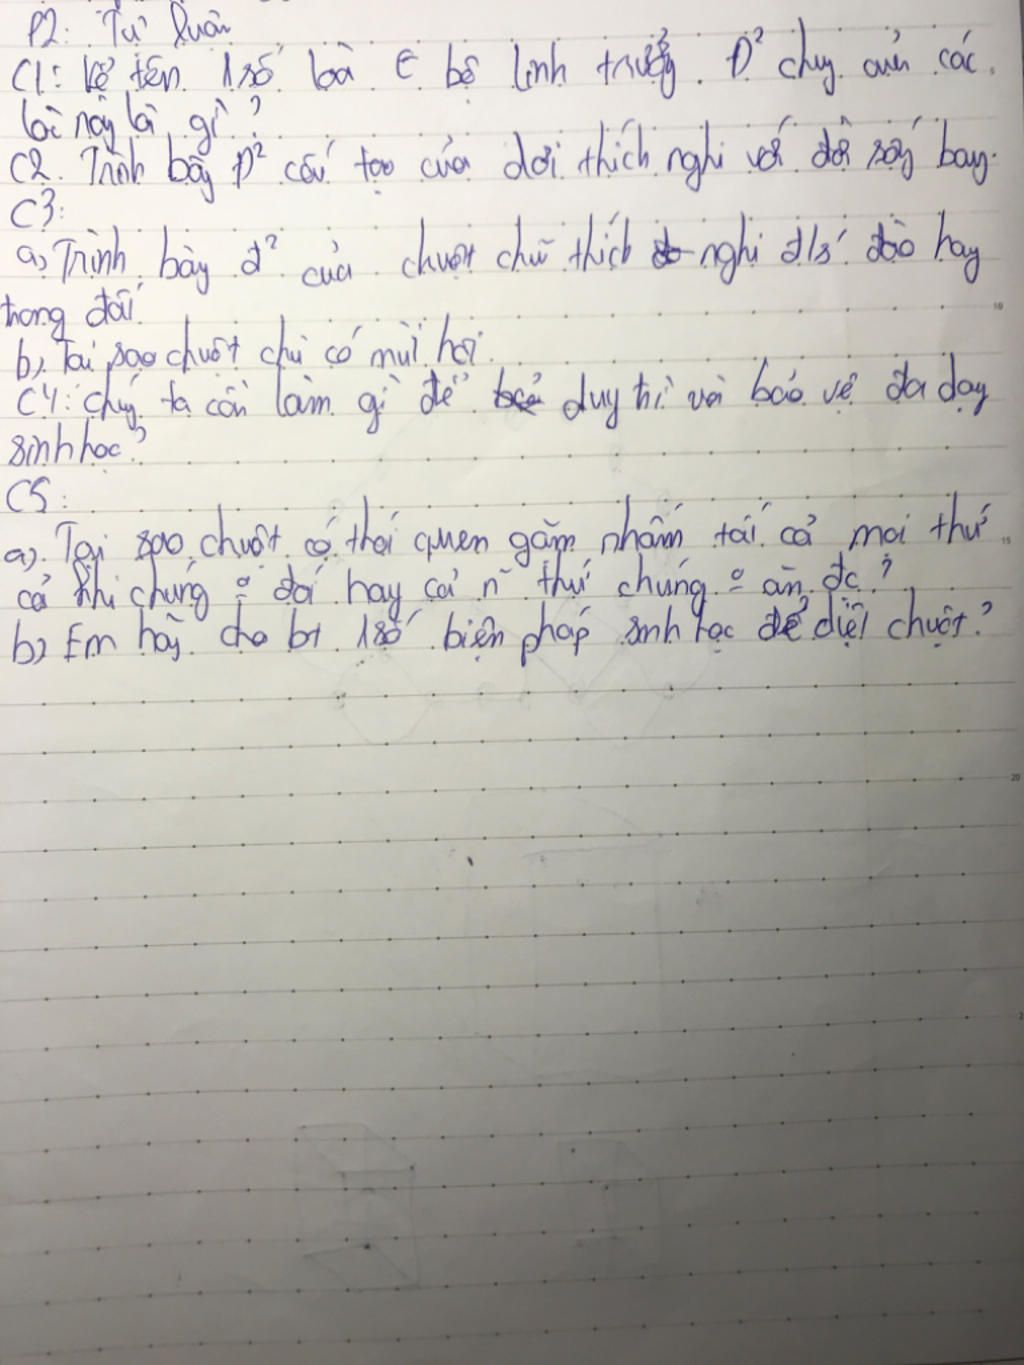 P2: Tự luận
C1: Kể tên 1 số loà ∈ bộ linh trưởng. Đ² chug của các
loài này là gì?
C2. Trình bày Đ² cấu tạo của dơi thích nghi với đời sống bay.
C3:
a, Trình bày đ² của chuột chũi thích nghi đ/s đào hay
trong đất
b, Tại sao chuột chũi có mùi hơi.
C4: chúg ta cần làm gì để duy trì và bảo vệ đa dạg
sinh học?
C5:
a). Tại sao chuột có thói quen gặm nhấm tất cả mọi thứ
cả khi chúng đói hay cả n~ thứ chúng ăn đc?
b) Em hãy cho bt 1 số biện pháp sinh học để diệt chuột?
10
15
20